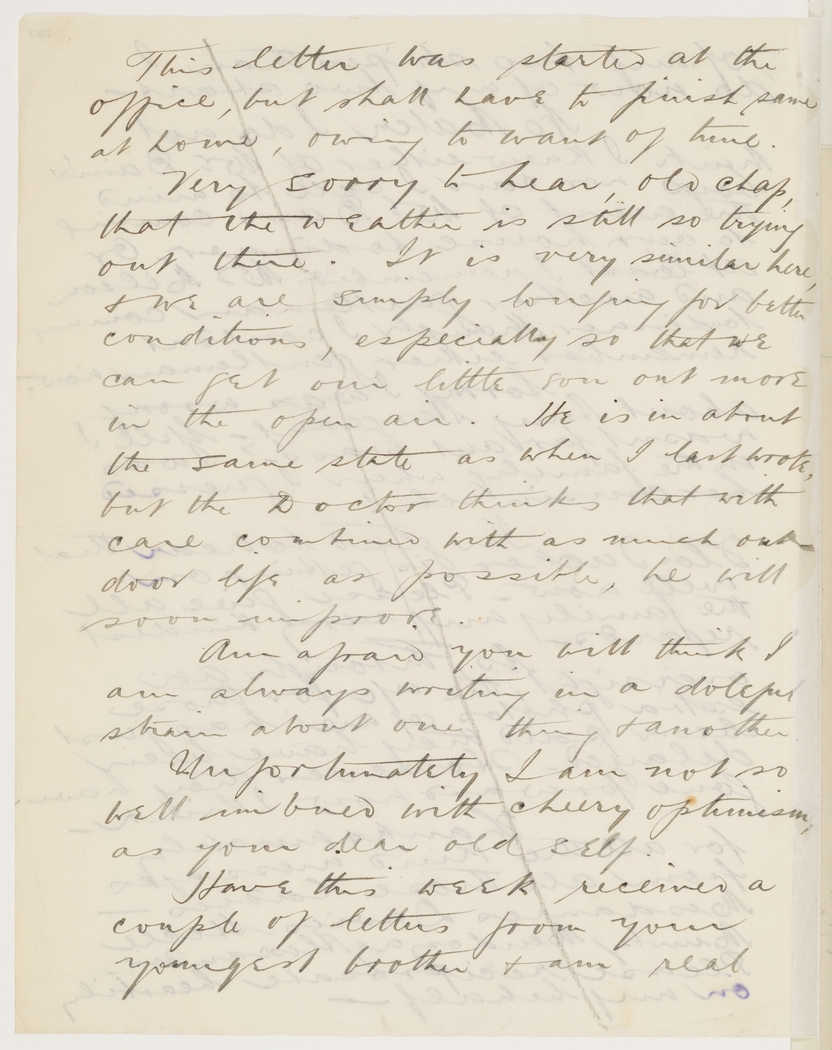 This letter was started at the
office, but shall have to finish same
at home, owing to want of time.
Very sorry to hear, old chap,
that the weather is still so trying
out there. It is very similar here,
& we are simply longing for better
conditions, especially so that we
can get our little son out more
in the open air. He is in about
the same state as when I last wrote,
but the Doctor thinks that with
care combined with as much out
door life as possible, he will
soon improve.
Am afraid you will think I
am always writing in a doleful
strain about one thing & another
Unfortunately I am not so
well imbued with cheery optimism,
as your dear old self.
Have this week received a
couple of letters from your
youngest brother & am real